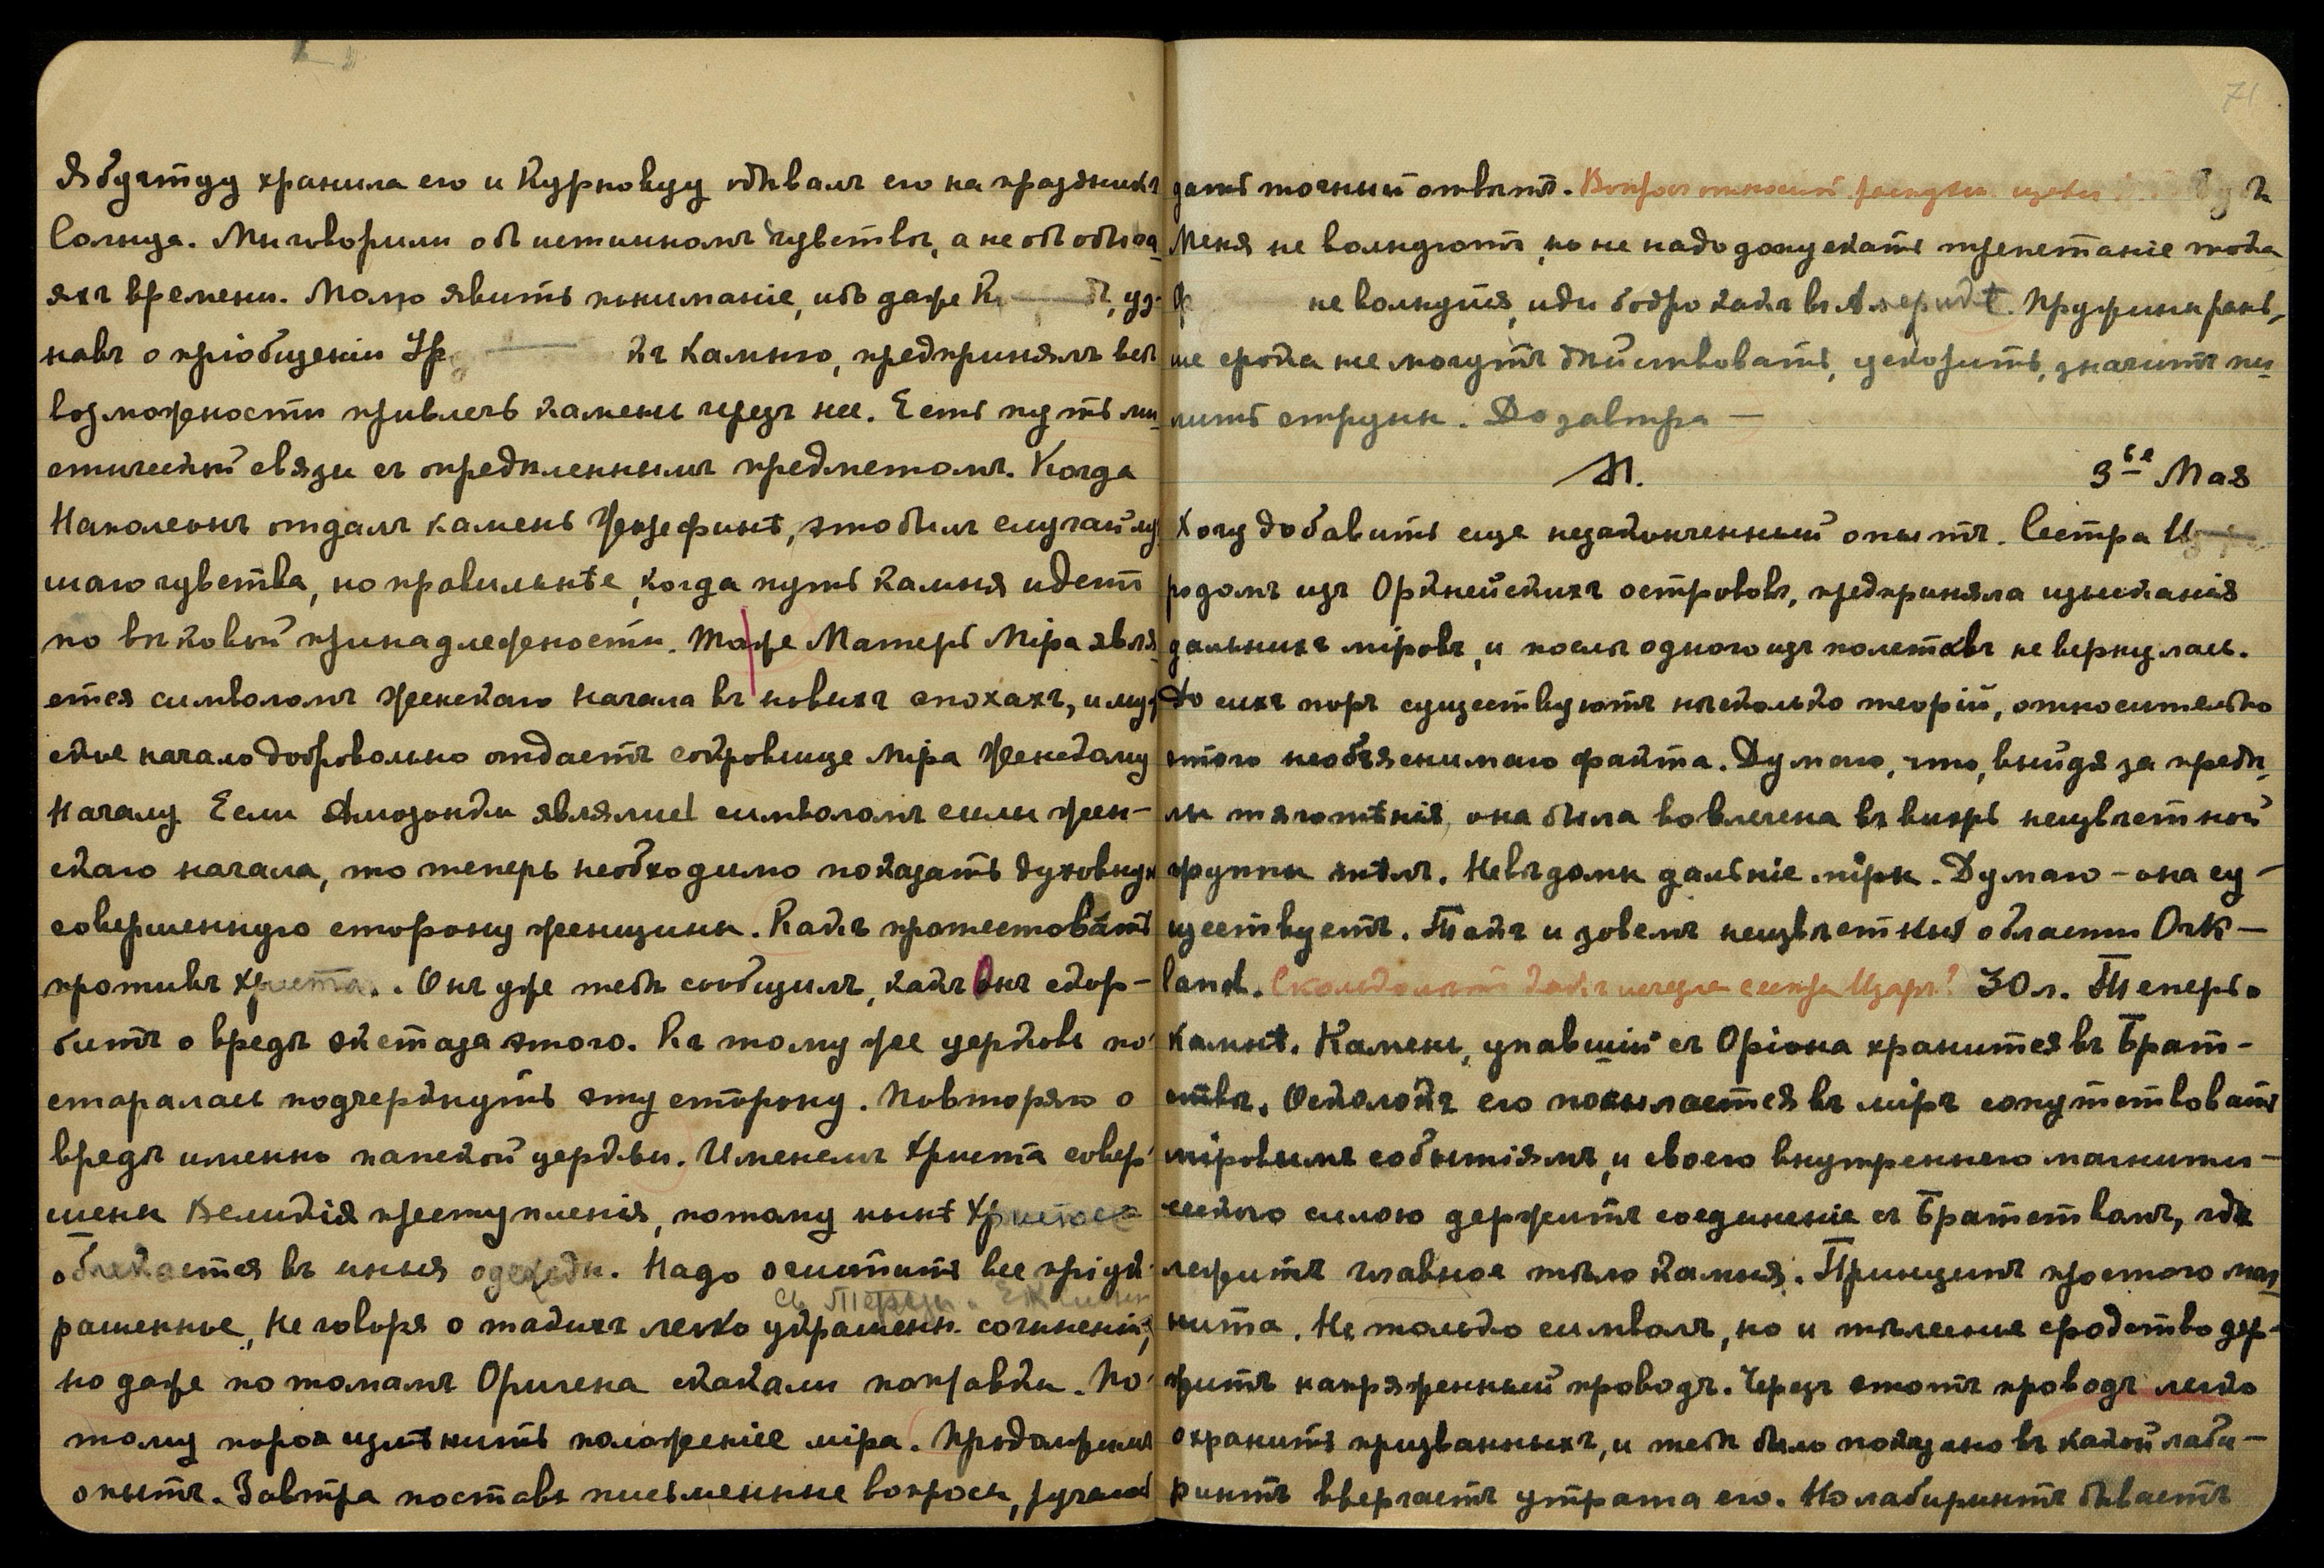 Ябучтуду хранила его и Курновуу обѣвалъ его на праздникъ
Солнца. Мы говорили объ истинномъ чувствѣ, а не объ обыча
яхъ времени. Молю явить пониманіе, ибо даже К ъ, уз-
навъ о пріобщеніи Ур къ Камню, предпринялъ всѣ
возможности привлечь камень черезъ нее. Есть путь ми
стической связи съ опредѣленнымъ предметомъ. Когда
Наполеонъ отдалъ камень Жозефинѣ, это былъ случай лу
шаго чувства, но правильнѣе, когда путь камня идетъ
по вѣковой принадлежности. Тоже Матерь Міра явля
ется символомъ женскаго начала въ новыхъ эпохахъ, и муж
ское начало добровольно отдаетъ сокровище Міра Женскому
Началу Если Амазонки являлись символомъ силы жен-
скаго начала, то теперь необходимо показать духовную
совершенную сторону женщины. Какъ протестовать
противъ Христа. Онъ уже тебѣ сообщилъ, какъ Онъ скор-
битъ о вредѣ экстаза этого. Къ тому же церковь по-
старалась подчеркнуть эту сторону. Повторяю о
вредѣ именно папской церкви. Именемъ Христа совер-
шены Великія преступленія, потому нынѣ Христосъ
облекается въ иныя одежды. Надо очистить все пріук-
св. Терезы. Екатерины
рашенное, Не говоря о такихъ легко украшенн. сочиненій,
но даже по томамъ Оригена скакали поправки. По-
тому пора измѣнить положеніе міра. Продолжимъ
опытъ. Завтра поставь письменные вопросы, ручаюсь
71
дать точный отвѣтъ.
Меня не волнуютъ, но не надо допускать трепетаніе тока
не волнуйся, иди бодро какъ въ Америкѣ. Пружины рань-
ше срока не могутъ дѣйствовать, ускорить, значитъ пи
лить струны. До завтра —
М. 3ье Мая
Хочу добавить еще незаконченный опытъ. Сестра И
родомъ изъ Оркнейскихъ острововъ, предприняла изысканія
дальнихъ міровъ, и послѣ одного изъ полетовъ не вернулась.
До сихъ поръ существуютъ нѣсколько теорій, относительно
этого необъяснимаго факта. Думаю, что, выйдя за предѣ-
лы тяготѣнія, она была вовлечена въ вихрь неизвѣстной
группы тѣлъ. Невѣдомы дальніе міры. Думаю – она су-
ществуетъ. Такъ и зовемъ неизвѣстныя области Ork-
land. Сколько лѣтъ какъ исчезла сестра Изаръ? 30 л. Теперь о
Камнѣ. Камень, упавшій съ Оріона хранится въ Брат-
ствѣ. Осколокъ его посылается въ міръ сопутствовать
міровымъ событіямъ, и своею внутреннею магнити-
ческою силою держитъ соединеніе съ Братствомъ, гдѣ
лежитъ главное тѣло камня. Принципъ простого маг
нита. Не только символъ, но и тѣлесное сродство дер-
житъ напряженный проводъ. Черезъ этотъ проводъ легко
охранить призванныхъ, и тебѣ было показано въ какой лаби-
ринтъ ввергаетъ утрата его. Но лабиринтъ бываетъ